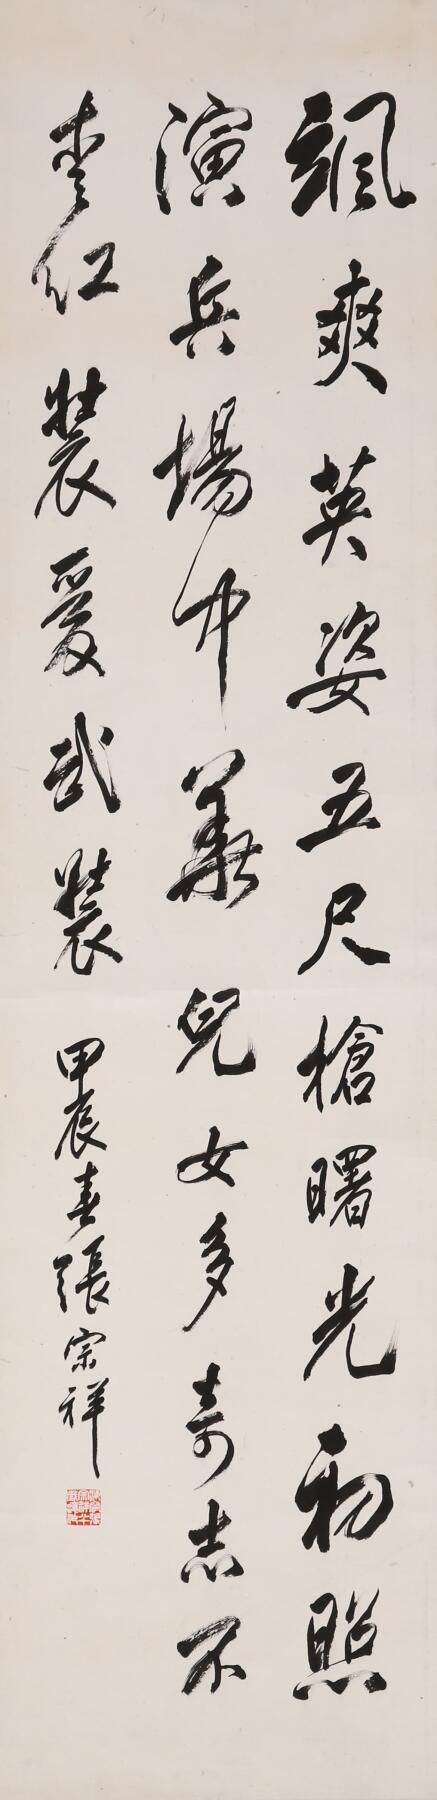 颯爽英姿五尺槍曙光初照
演兵場中華兒女多奇志不
愛紅裝愛武裝
甲辰春張宗祥